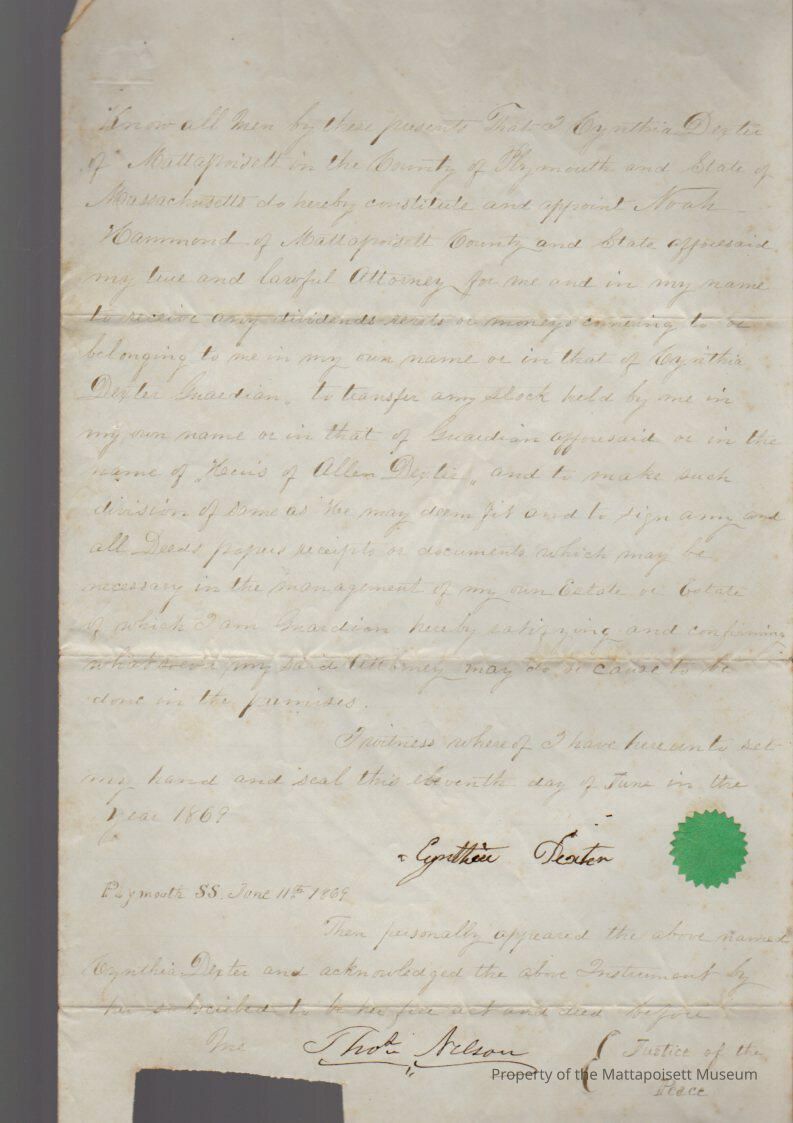 Know all Men by these presents That I Cynthia Dexter
of Mattapoisett in the County of Plymouth and State of
Massachusetts do hereby constitute and appoint Noah
Hammond of Mattapoisett County and State afforesaid
my true and lawful Attorney for me and in my name
to receive any dividends rents or moneys comeing to or
belonging to me in my own name or in that of Cynthia
Dexter Guardian, to transfer any stock held by me in
my own name or in that of Guardian afforesaid or in the
name of "Heirs of Allen Dexter" and to make such
division of same as he may deem fit and to sign any and
all Deeds papers receipts or documents which may be
necessary in the management of my own Estate or Estate
of which I am Guardian hereby ratifying and confirming
whatsoever my said Attorney may do or cause to be
done in the premises.
I witness whereof I have hereunto set
my hand and seal this eleventh day of June in the
year 1869
Cynthia Dexter
Plymouth SS. June 11th 1869
Then personally appeared the above named
Cynthia Dexter and acknowledged the above Instrument by
her subscribed to be her free act and deed before
me Thos. Nelson { Justice of the
Peace
Property of the Mattapoisett Museum